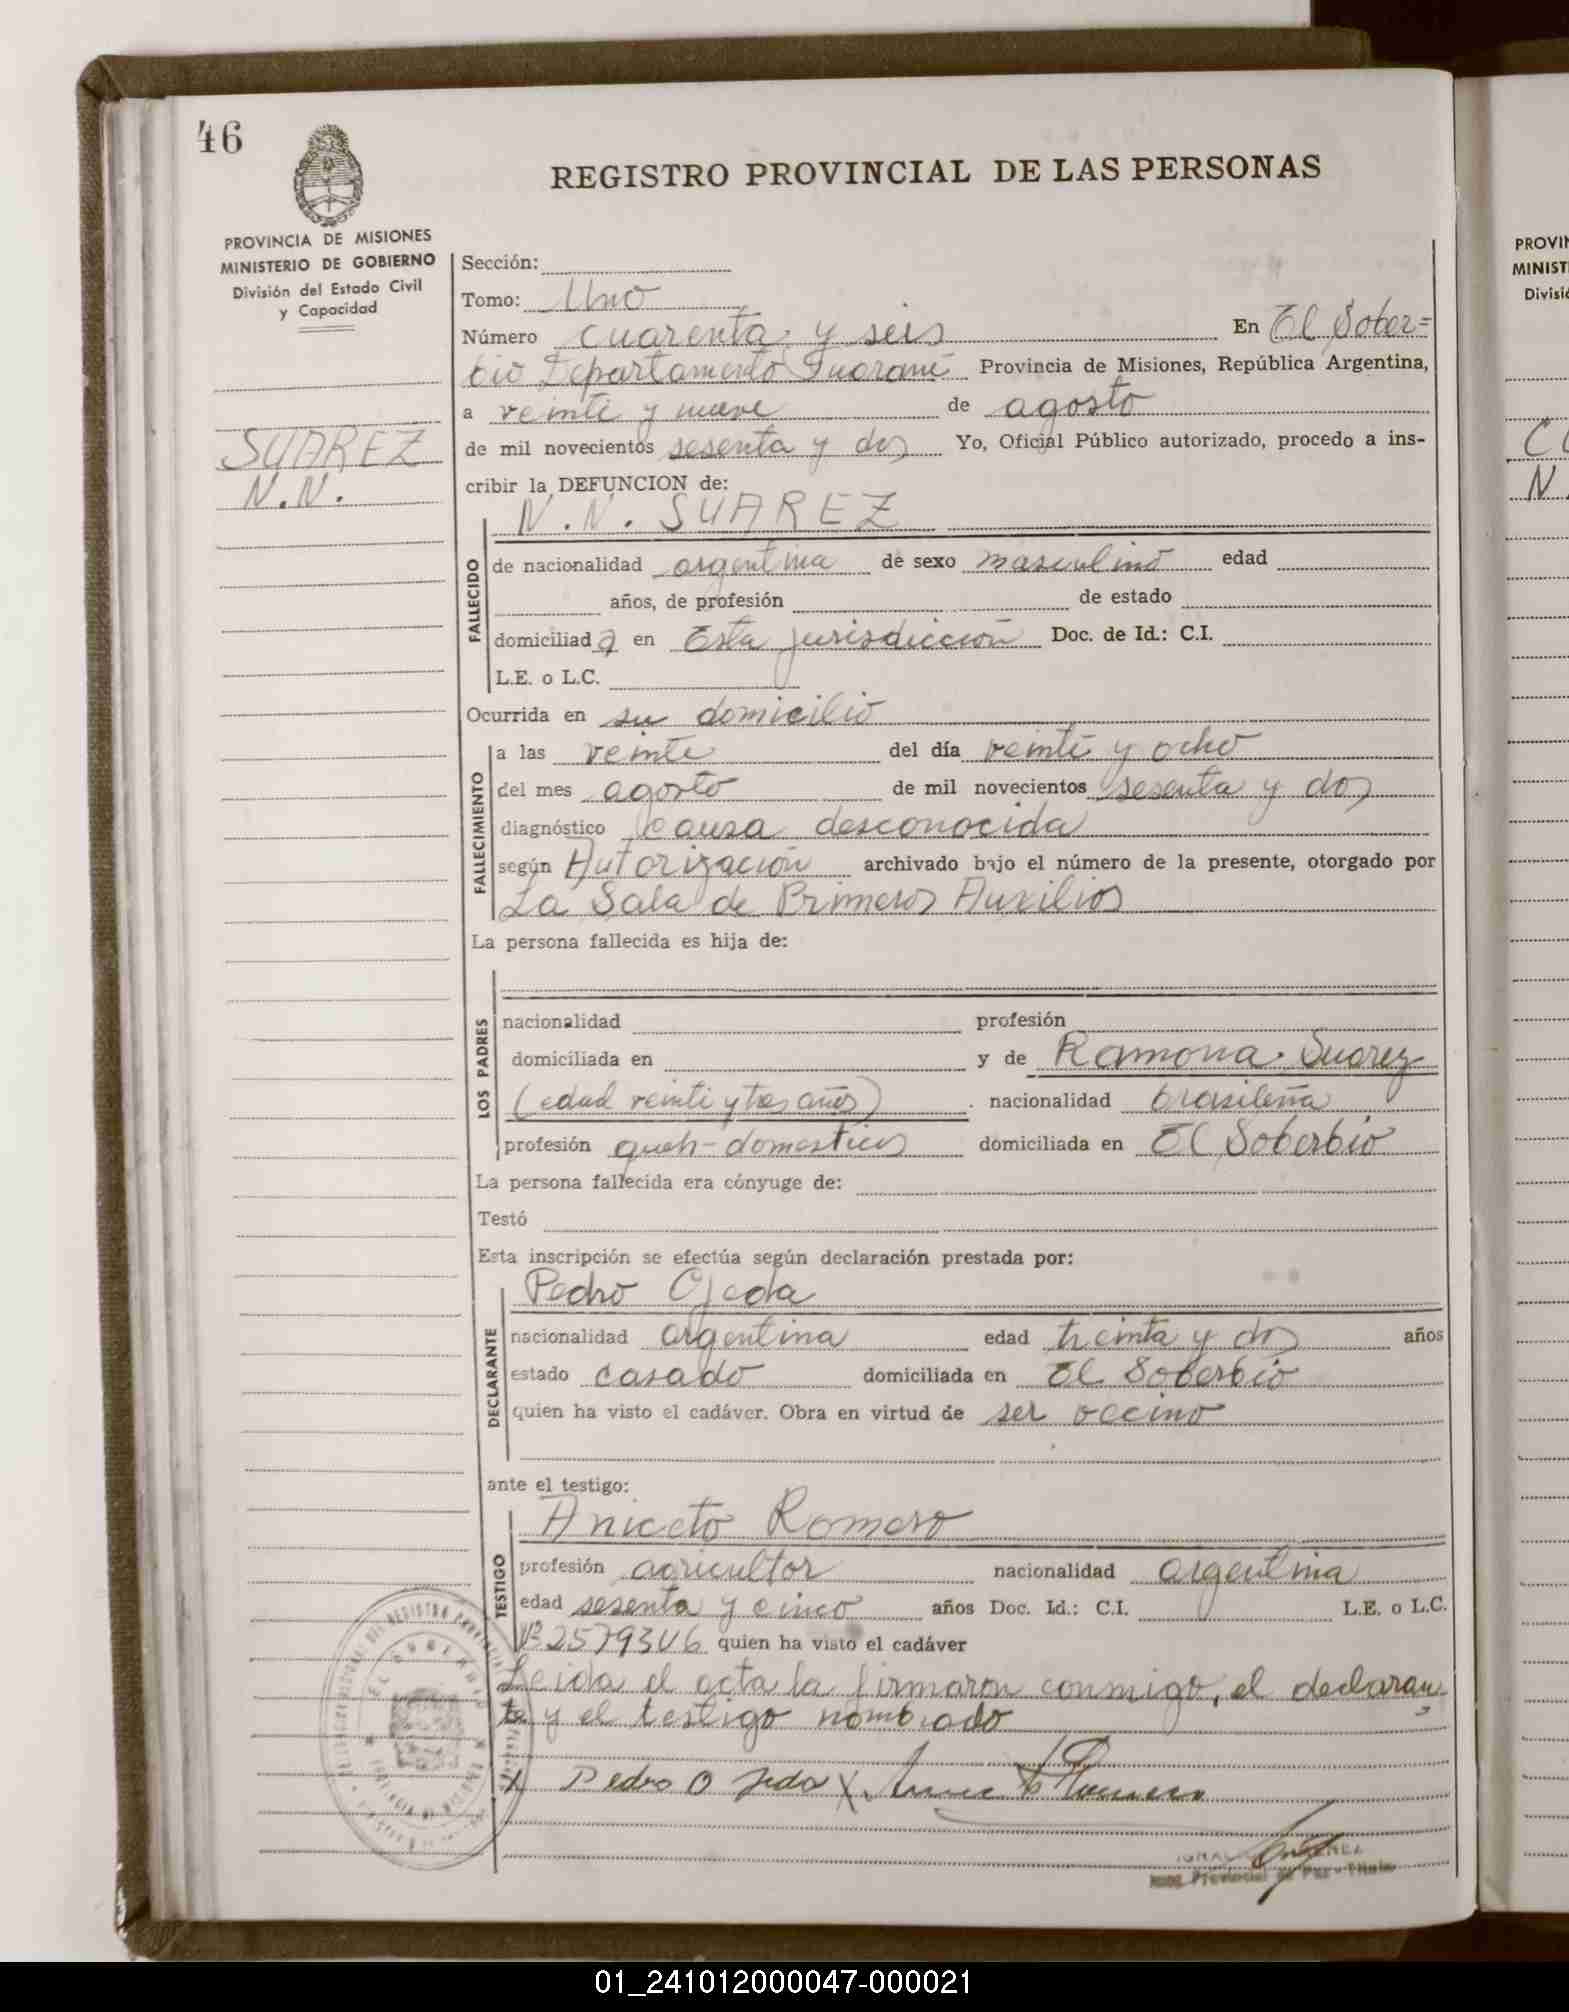 46
REGISTRO PROVINCIAL DE LAS PERSONAS
PROVINCIA DE MISIONES
MINISTERIO DE GOBIERNO
División del Estado Civil
y Capacidad
SUAREZ
N.N.
Sección:
Tomo: Uno
Número cuarenta y seis En El Sober=
bio Departamento Guaraní Provincia de Misiones, República Argentina,
a veinti y nueve de agosto
de mil novecientos sesenta y dos Yo, Oficial Público autorizado, procedo a ins-
cribir la DEFUNCION de:
N.N. SUAREZ
FALLECIDO
de nacionalidad argentina de sexo masculino edad
años, de profesión de estado
domiciliad a en Esta jurisdicción Doc. de Id.: C.I.
L.E. o L.C.
Ocurrida en su domicilio
FALLECIMIENTO
a las veinte del día veinti y ocho
del mes agosto de mil novecientos sesenta y dos
diagnóstico causa desconocida
según Autorización archivado bajo el número de la presente, otorgado por
La Sala de Primeros Auxilios
La persona fallecida es hija de:
LOS PADRES
nacionalidad profesión
domiciliada en y de Ramona Suarez
(edad veinti y tres años) nacionalidad brasileña
profesión queh-domesticos domiciliada en El Soberbio
La persona fallecida era cónyuge de:
Testó
Esta inscripción se efectúa según declaración prestada por:
Pedro Ojeda
DECLARANTE
nacionalidad argentina edad treinta y dos años
estado casado domiciliada en El Soberbio
quien ha visto el cadáver. Obra en virtud de ser vecino
ante el testigo:
Aniceto Romero
TESTIGO
profesión agricultor nacionalidad argentina
edad sesenta y cinco años Doc. Id.: C.I. L.E. o L.C.
quien ha visto el cadáver
Leida el acta la firmaron conmigo, el declaran
te y el testigo nombrado
x Pedro Ojeda x
PROVIN
MINIST
Divisió
N
01_241012000047-000021